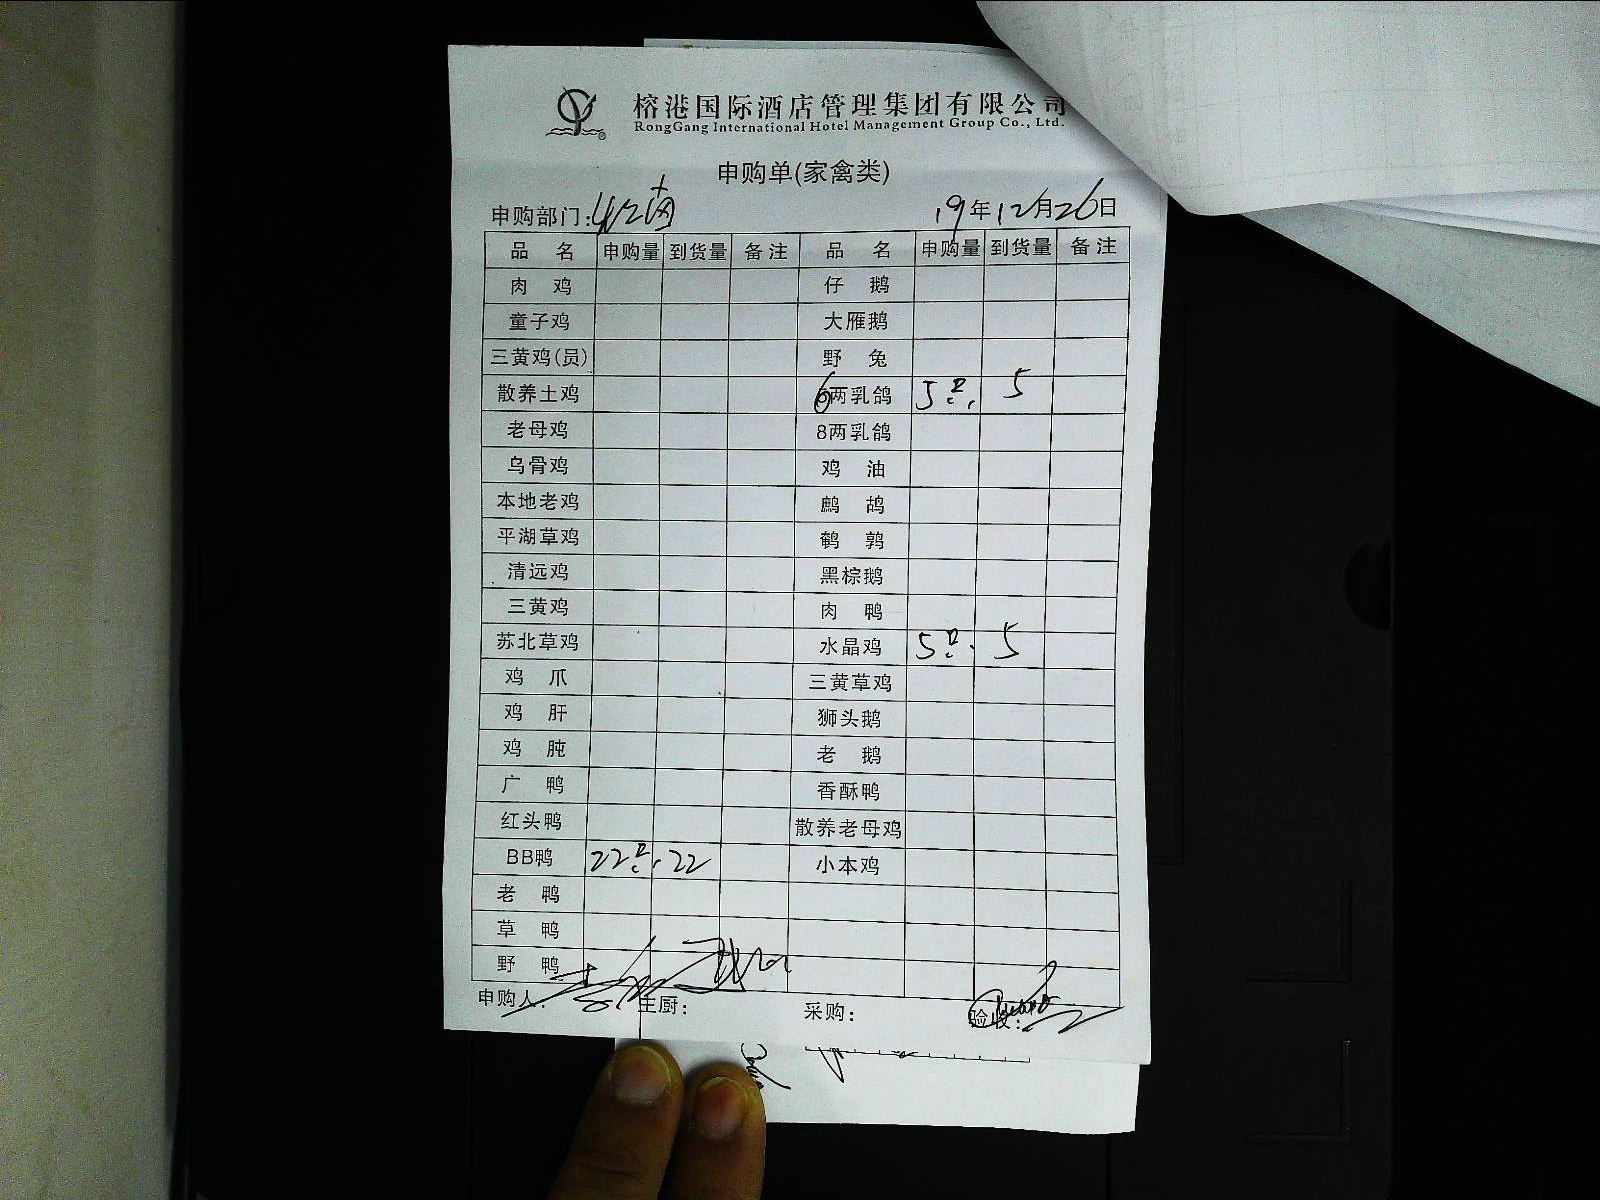 榕港国际酒店管理集团有限公司
RongGang International Hotel Management Group Co., Ltd.
申购单(家禽类)
申购部门: 19年12月26日
品 名 申购量 到货量 备注 品 名 申购量 到货量 备注
肉 鸡 仔 鹅
童子鸡 大雁鹅
三黄鸡(员) 野 兔
散养土鸡 6两乳鸽 5只. 5
老母鸡 8两乳鸽
乌骨鸡 鸡 油
本地老鸡 鹧 鸪
平湖草鸡 鹌 鹑
清远鸡 黑棕鹅
三黄鸡 肉 鸭
苏北草鸡 水晶鸡 5只. 5
鸡 爪 三黄草鸡
鸡 肝 狮头鹅
鸡 肫 老 鹅
广 鸭 香酥鸭
红头鸭 散养老母鸡
BB鸭 22只. 22 小本鸡
老 鸭
草 鸭
野 鸭
申购人: 主厨: 采购: 验收: